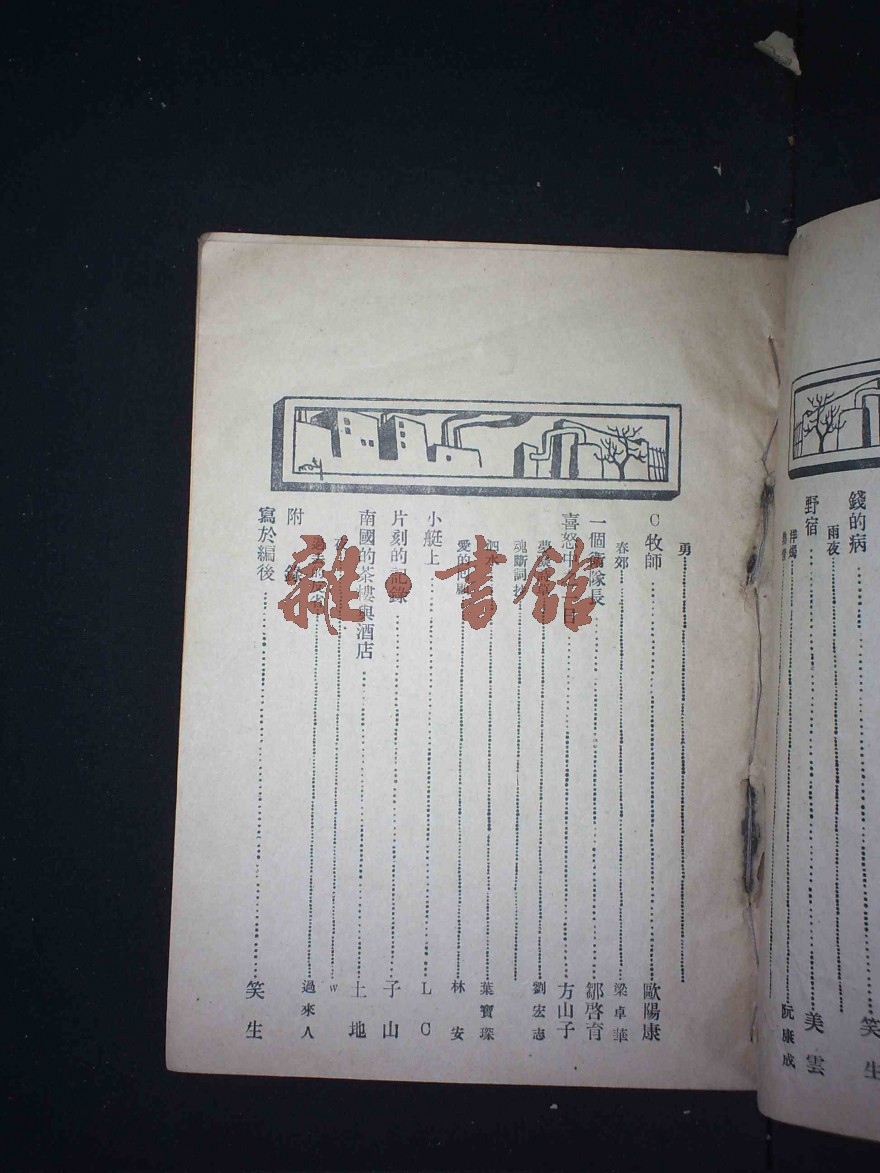 錢的病 笑生
雨夜
野宿 美雲
阮康成
勇
C牧師 歐陽康
春郊 梁卓華
一個衛隊長 鄒啓育
喜怒中 方山子
劉宏志
魂斷詞
泗水 葉寶琛
愛的 林安
小艇上 LC
片刻的記錄 子山
南國的茶樓與酒店 土地
W
過來人
附錄
寫於編後 笑生
雜·書館